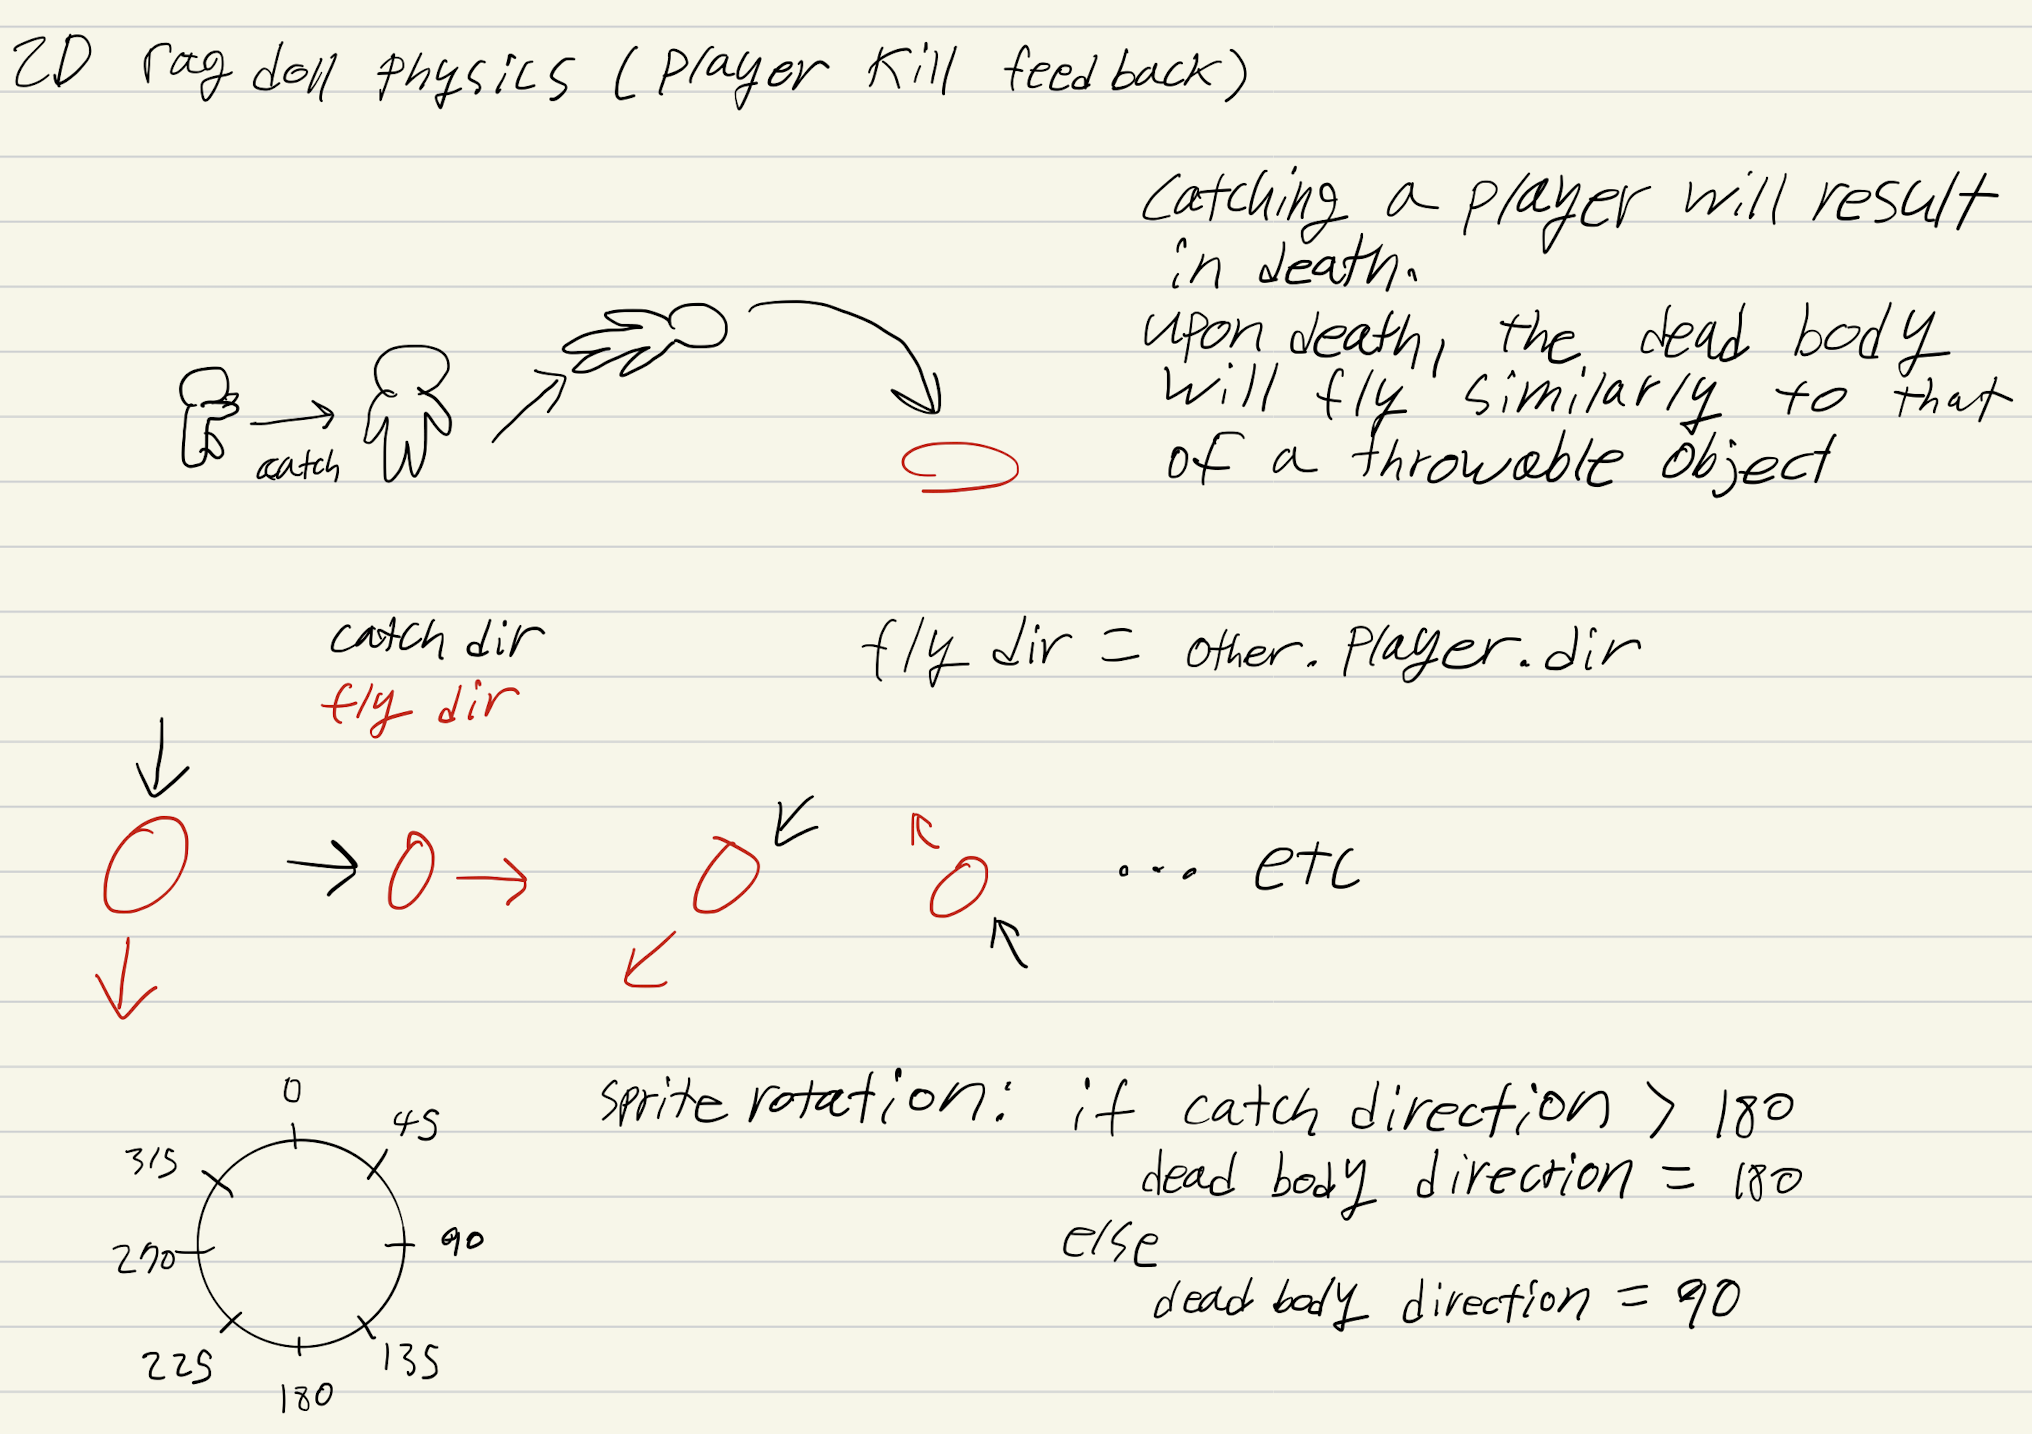 2D rag doll physics (player kill feedback)
catching a player will result
in death.
upon death, the dead body
will fly similarly to that
of a throwable object
catch
catch dir
fly dir
fly dir = other.player.dir
... etc
0
45
90
135
180
225
270
315
sprite rotation: if catch direction > 180
dead body direction = 180
else
dead body direction = 90